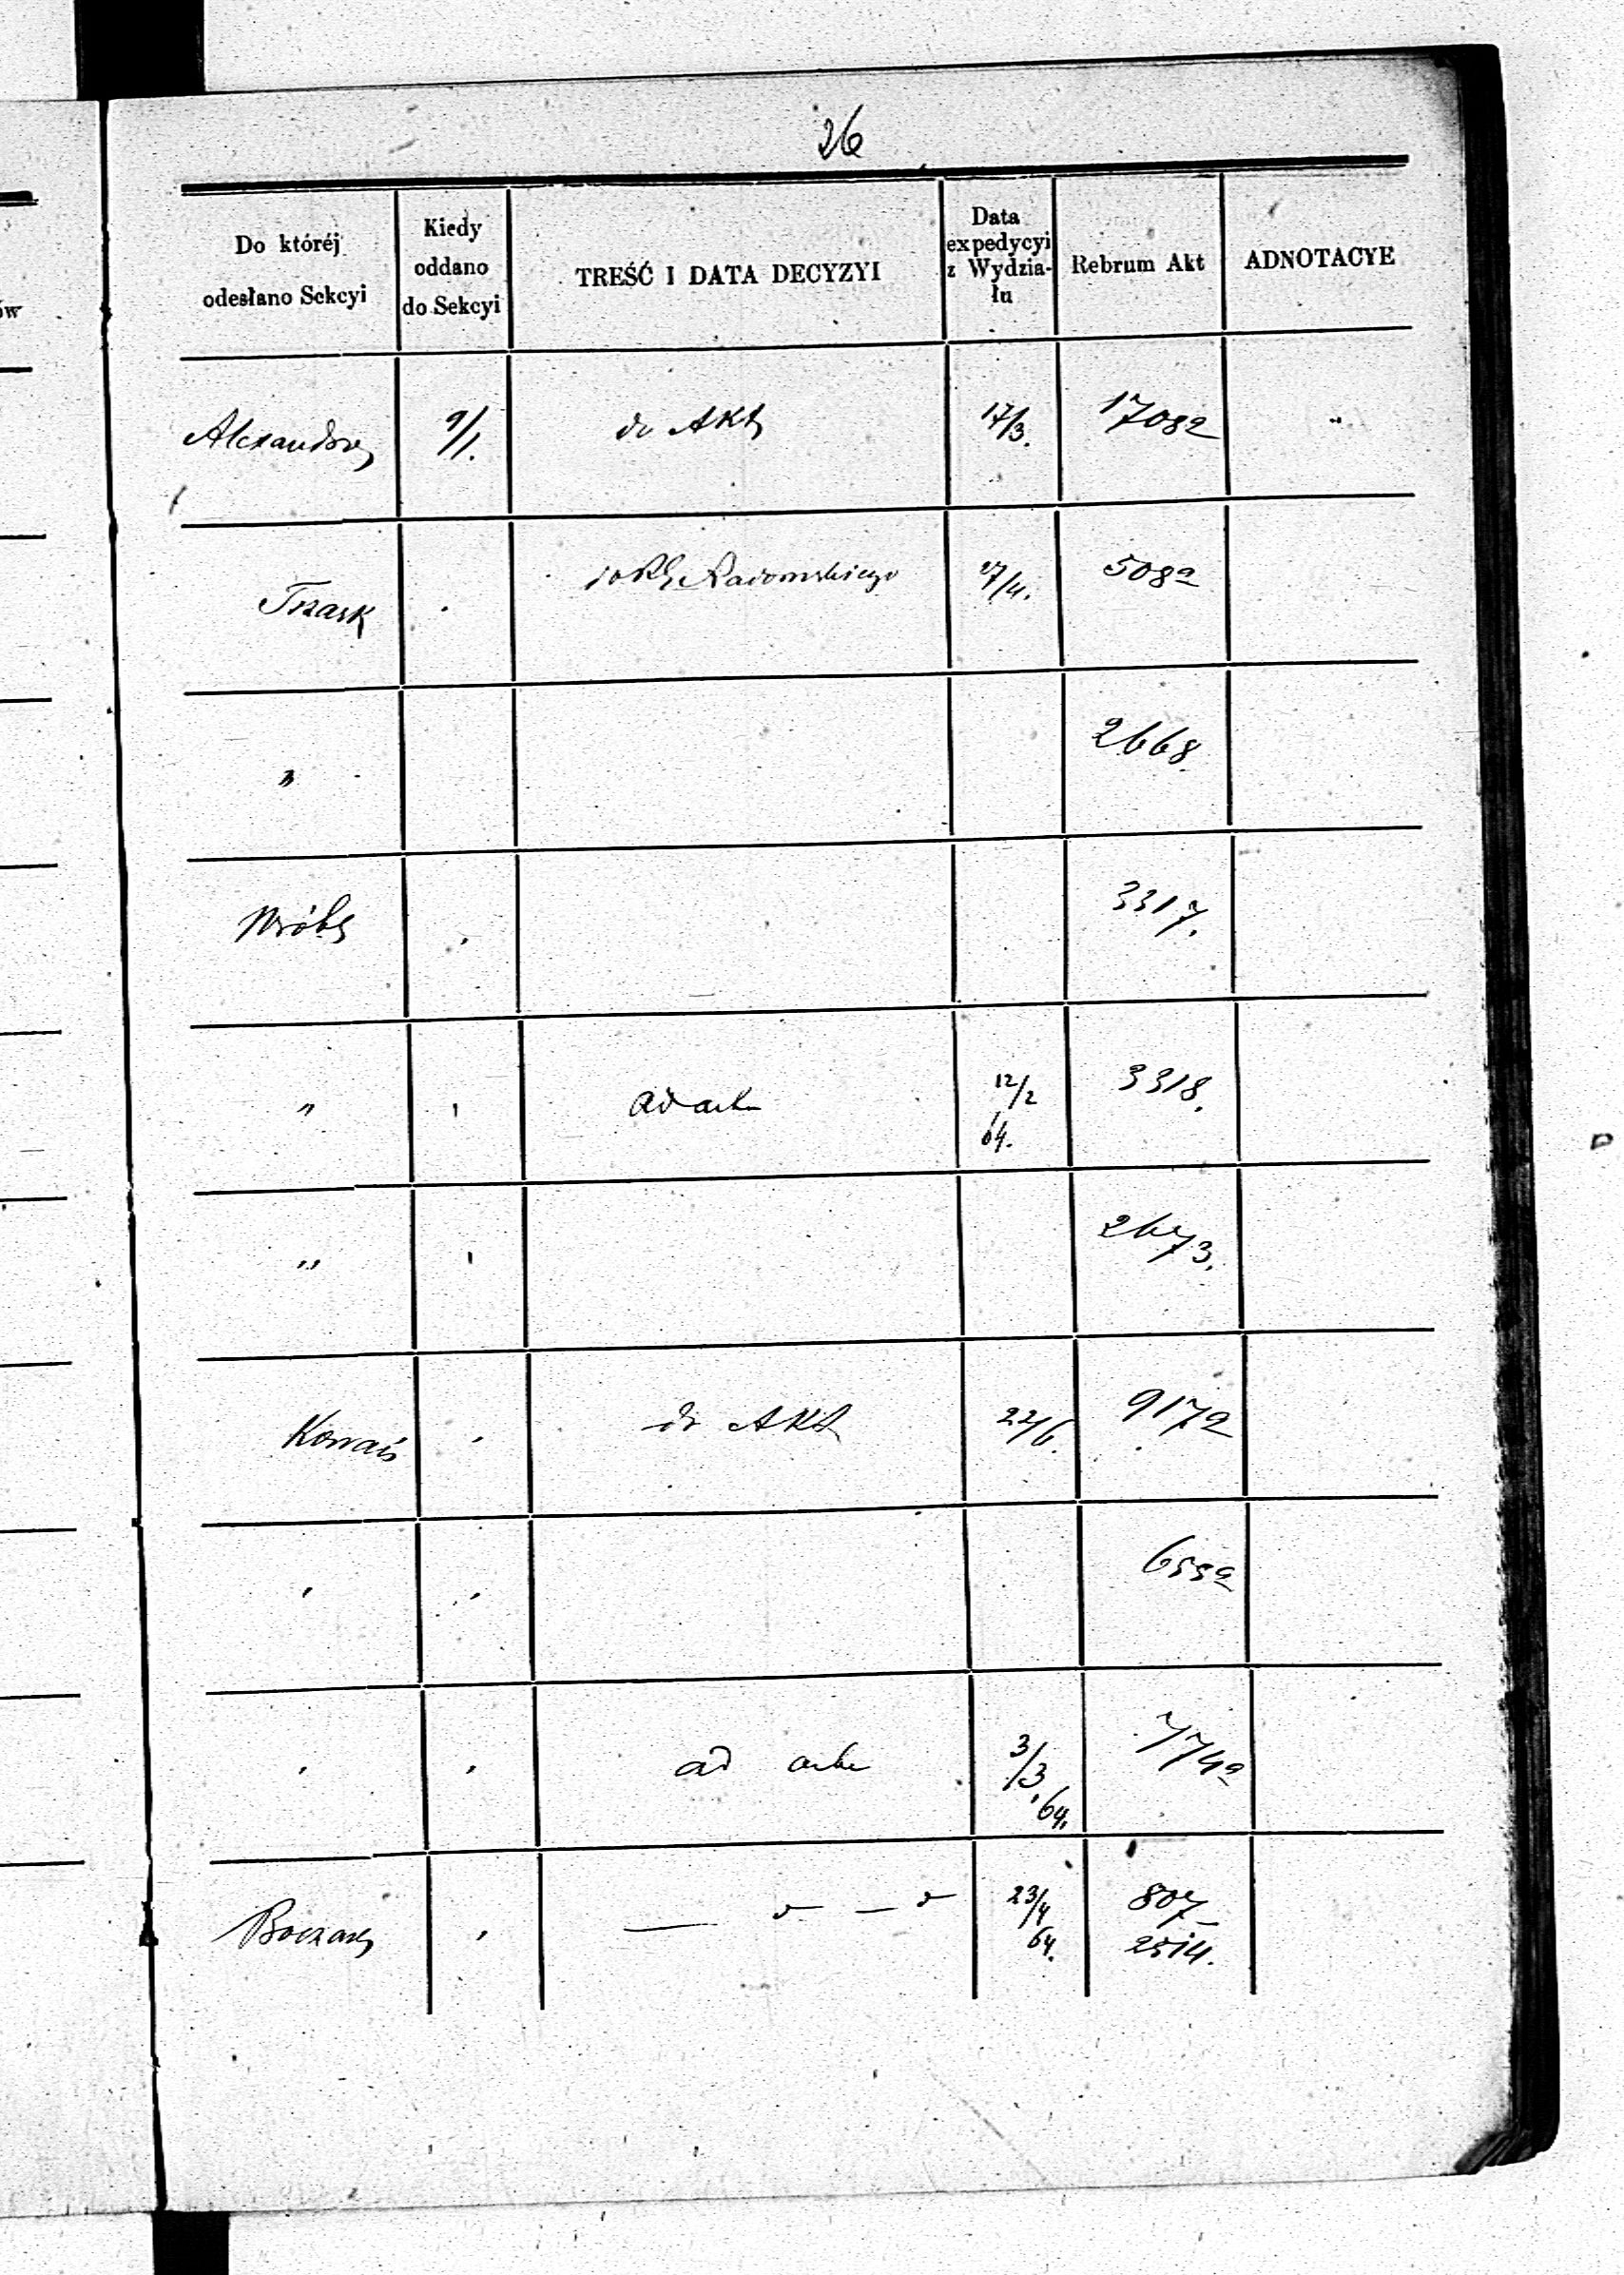 26
Do któréj odesłano Sekcyi
Kiedy oddano do Sekcyi
TREŚĆ I DATA DECYZYI
Data expedycyi z Wydzia-łu
Rebrum Akt
ADNOTACYE
9/1. do Akt 17/3. 1708a "
Trzask . Radomskiego 508a
" 2668.
Wróbl 3317.
" ' ad acta 12/2 64. 3318.
" ' 2673.
do Akt 22/6. 917a
' ' 655a
' ' ad acta 3/3 64. 774a
' 23/4 64. 807
2514.
ów